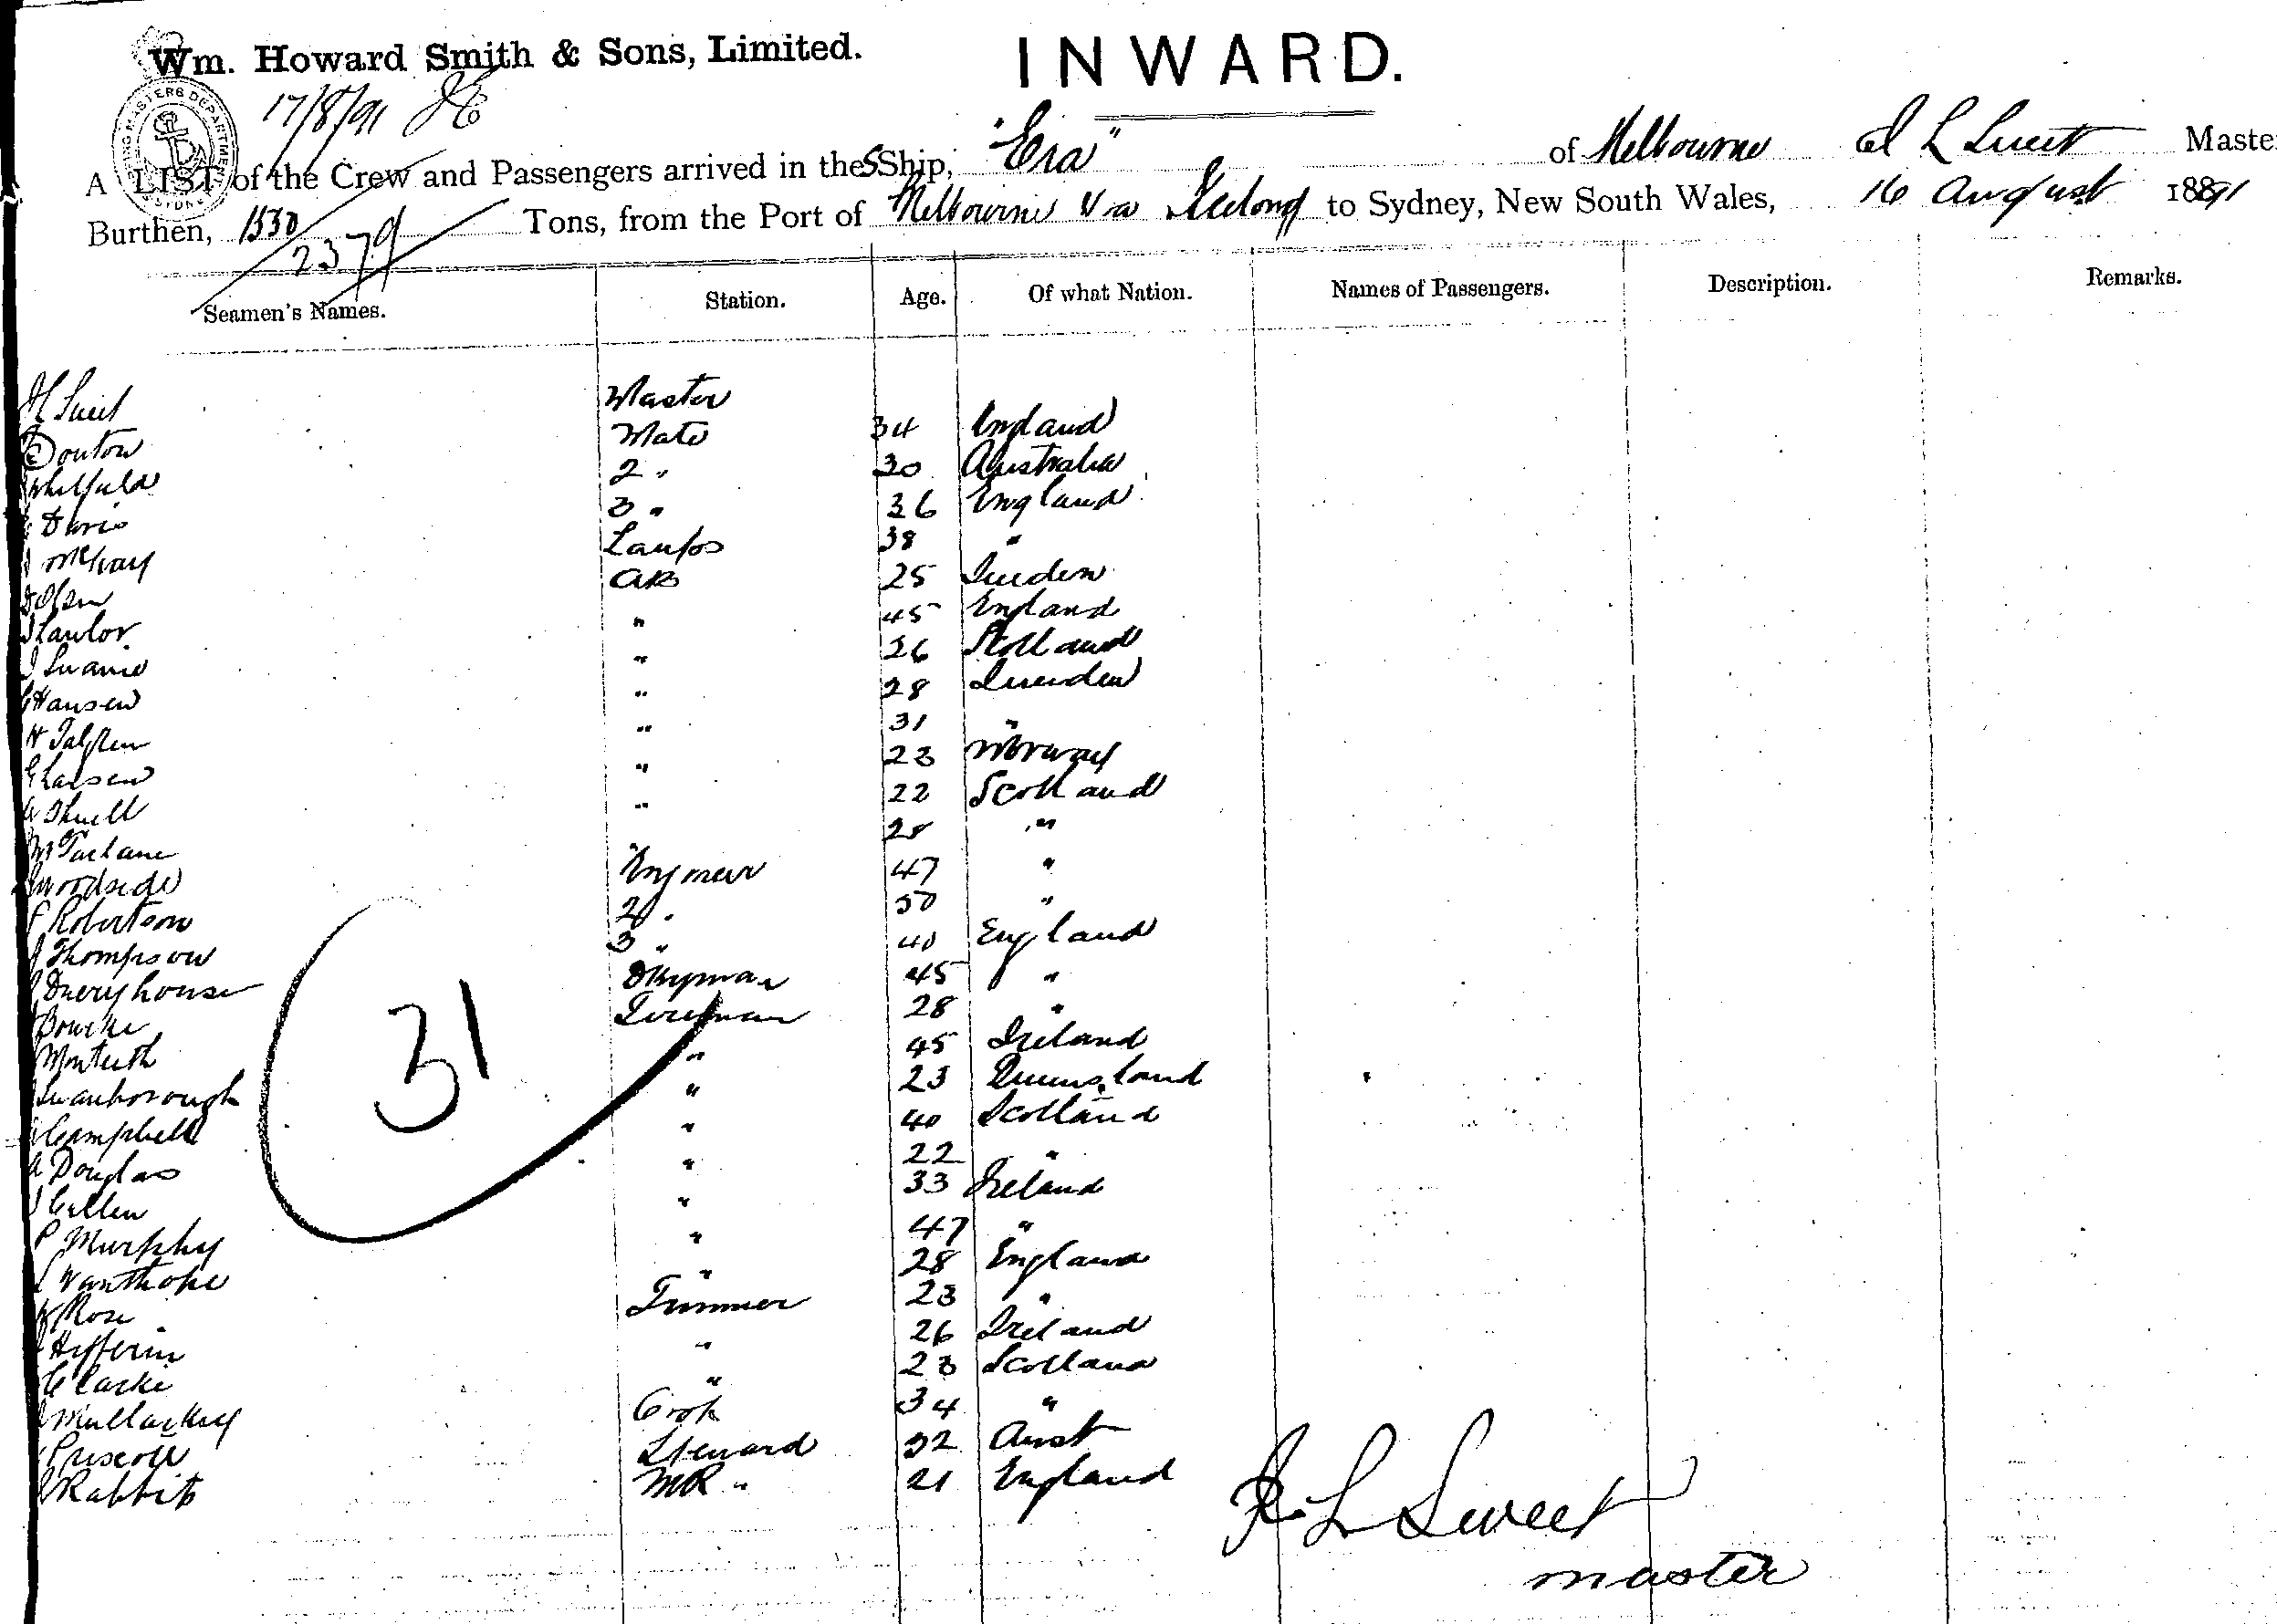 Wm. Howard Smith & Sons, Limited.
INWARD.
17/8/91
A LIST of the Crew and Passengers arrived in the S Ship, "Era" of Melbourne L Sweet Maste
Burthen, 1530 Tons, from the Port of Melbourne Via Geelong to Sydney, New South Wales, 16 August 1891
2379
Seamen's Names. Station. Age. Of what Nation. Names of Passengers. Description. Remarks.
L Sweet Master
Douton Mate 34 England
Whitfield 2 " 30 Australia
Davis 3 " 36 England
McIvay Lamps 38 "
Olsen AB 25 Sweden
Lawlor " 45 England
J Swanie " 26 Scotland
Hansen " 28 Sweden
H " 31 "
Larsen " 23 Norway
A " 22 Scotland
McFarlane 28 "
Woodside Engineer 47 "
P Robertson 2 " 50 "
J Thompson 3 " 40 England
Dueryhouse Dkyman 45 "
Bourke Fireman 28 "
Monteith " 45 Ireland
Swanborough " 23 Queensland
Campbell " 40 Scotland
A Douglas " 22 "
J Cullen " 33 Ireland
P Murphy " 47 "
Wanthope " 28 England
Rose Trimmer 23 "
Hefferin " 26 Ireland
Clarke " 23 Scotland
Mullarkey Cook 34 "
Priscott Steward 32 Aust
Rabbits MR " 21 England
31
L Sweet
master